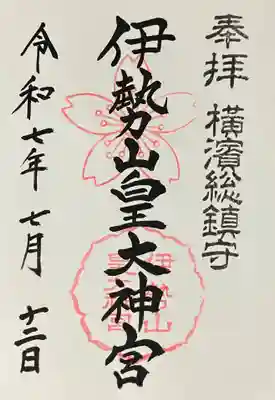 奉拝 横濱総鎮守
伊勢山皇大神宮
伊勢山皇大神宮
令和七年 七月 十二日